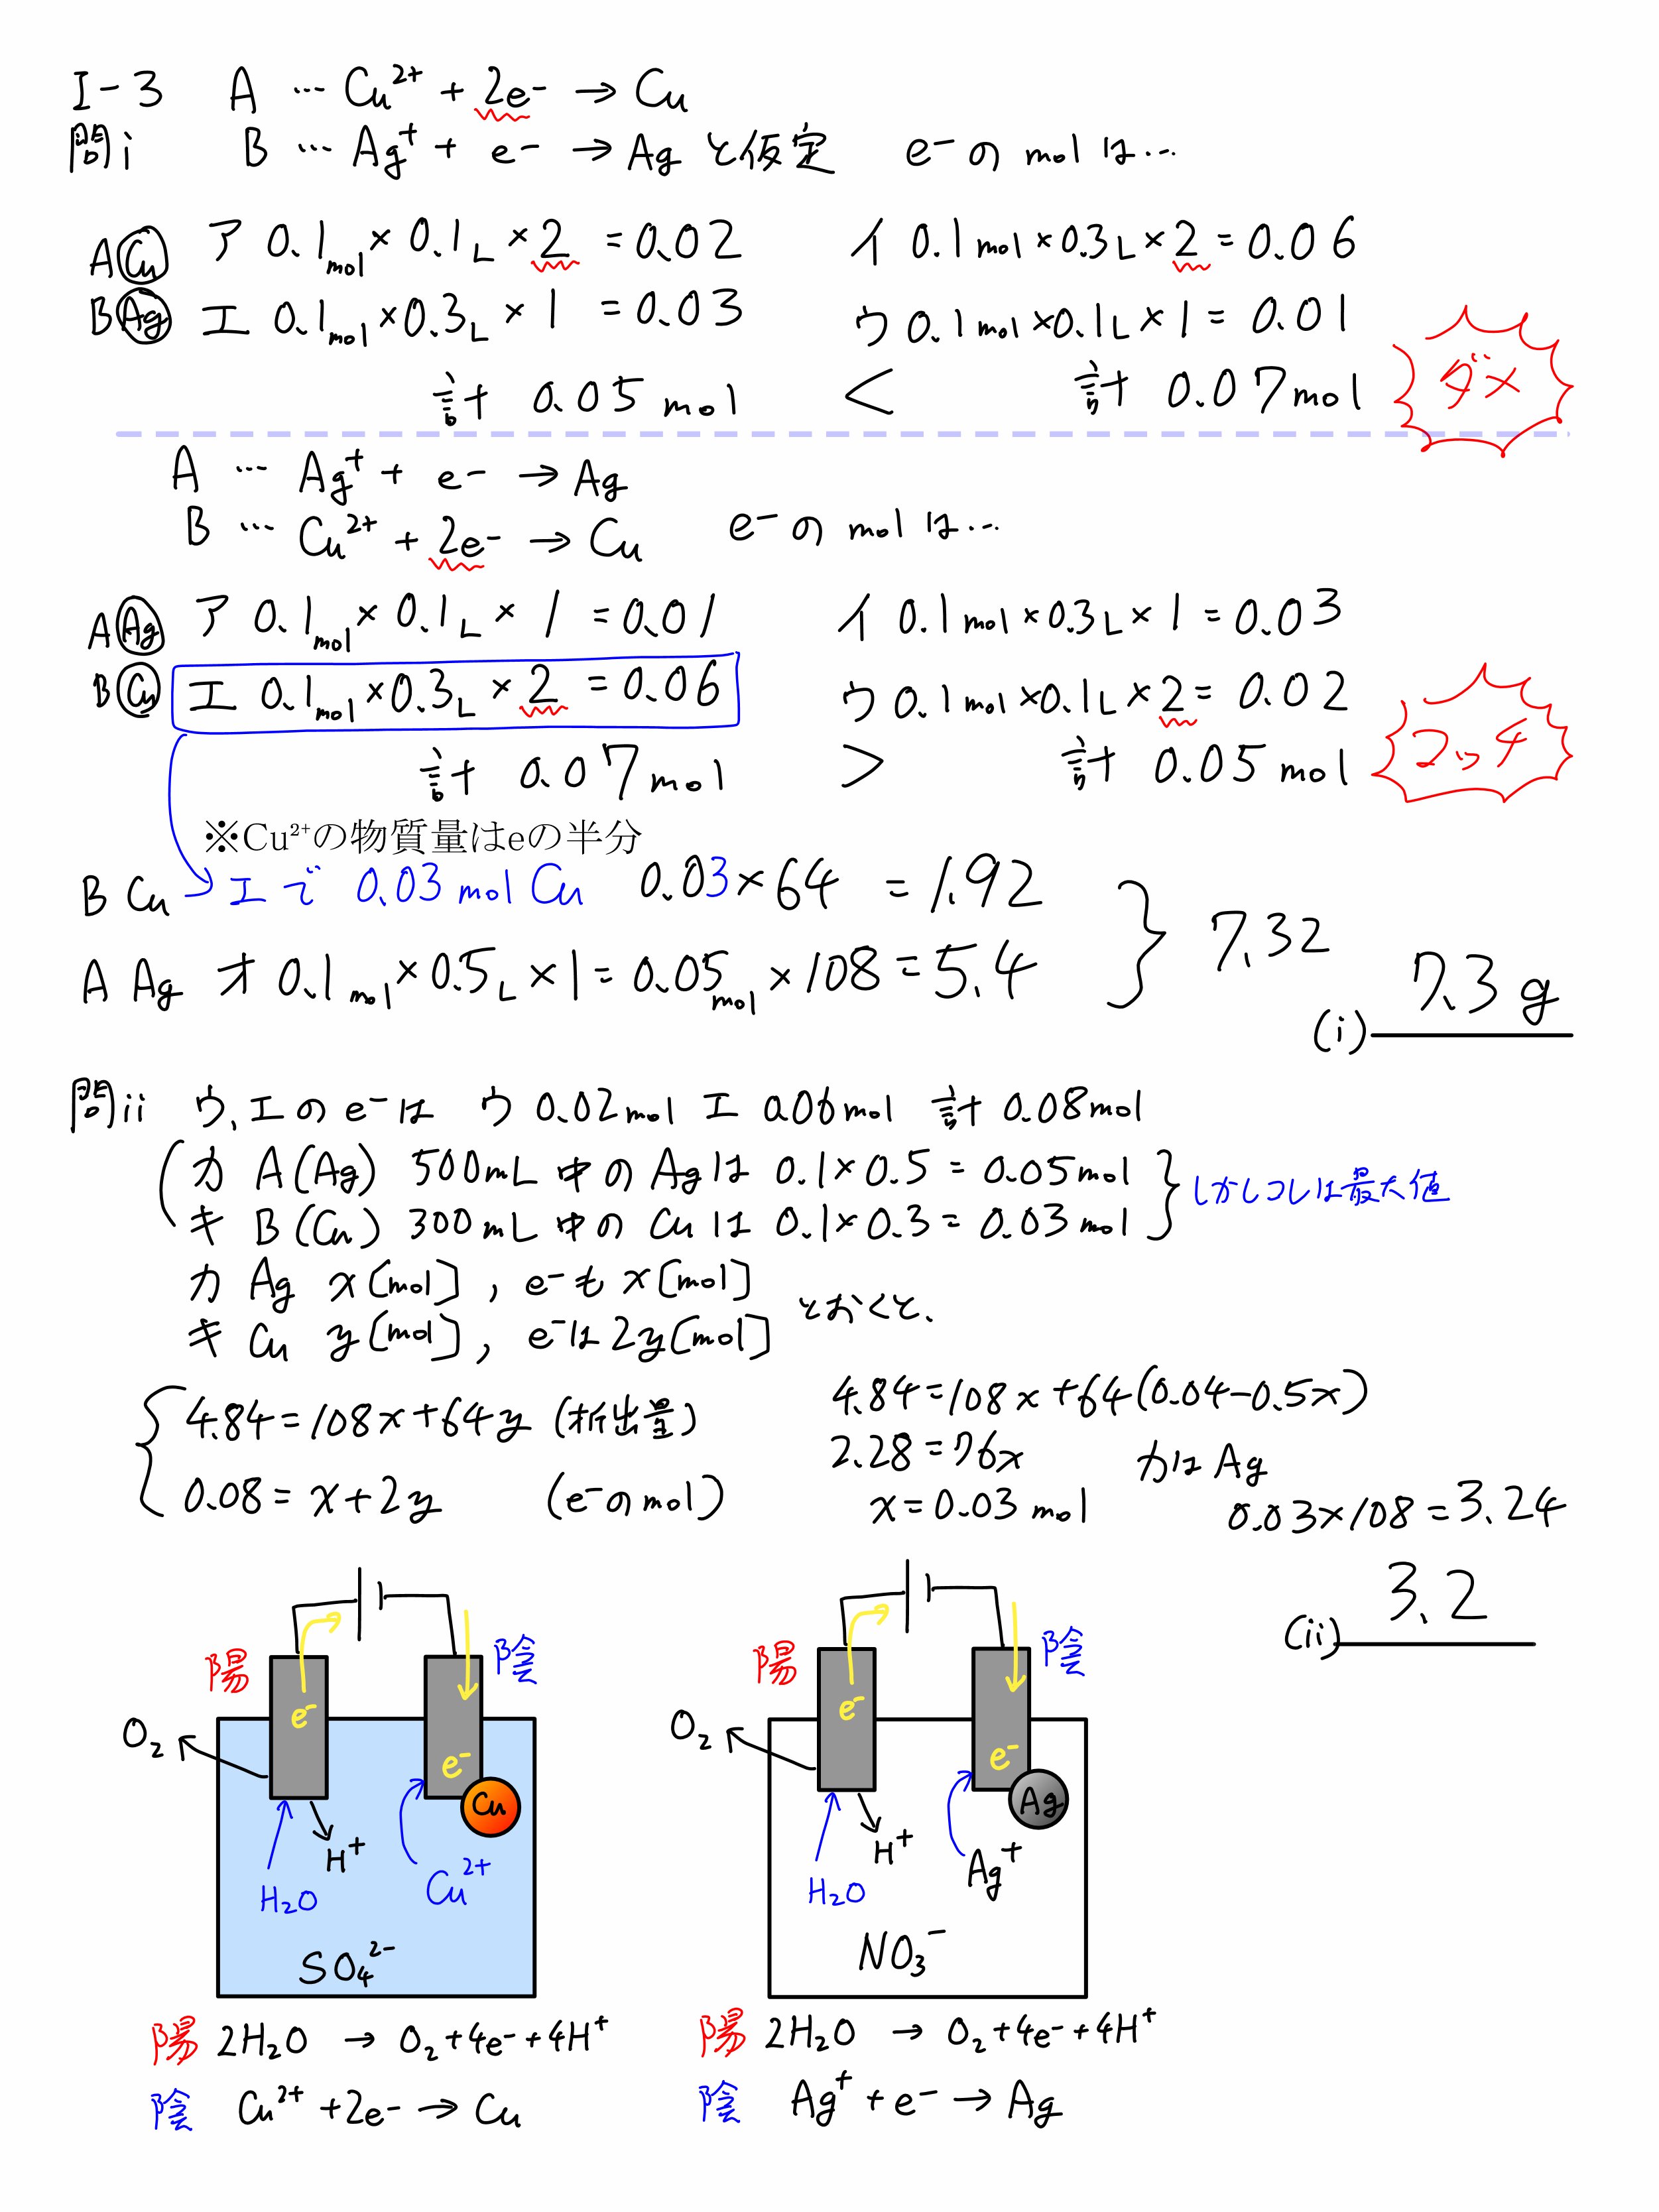 I-3 A … Cu²⁺ + 2e⁻ → Cu
問i B … Ag⁺ + e⁻ → Ag と仮定 e⁻の molは…
A Cu ア 0.1mol × 0.1L × 2 = 0.02 イ 0.1mol×0.3L×2=0.06
B Ag エ 0.1mol×0.3L × 1 = 0.03 ウ 0.1mol×0.1L×1=0.01
計 0.05mol < 計 0.07mol ダメ
A … Ag⁺ + e⁻ → Ag
B … Cu²⁺ + 2e⁻ → Cu e⁻の molは…
A Ag ア 0.1mol × 0.1L × 1 = 0.01 イ 0.1mol×0.3L×1=0.03
B Cu エ 0.1mol×0.3L × 2 = 0.06 ウ 0.1mol×0.1L×2=0.02
計 0.07mol > 計 0.05mol マッチ
※Cu²⁺の物質量はeの半分
B Cu → エで 0.03mol Cu 0.03×64 = 1.92
7.32
A Ag オ 0.1mol×0.5L×1=0.05mol×108=5.4
(i) 7.3g
問ii ウ,エの e⁻は ウ 0.02mol エ 0.06mol 計 0.08mol
カ A(Ag) 500mL中のAgは 0.1×0.5=0.05mol
キ B(Cu) 300mL中の Cuは 0.1×0.3=0.03mol
しかしコレは最大値
カ Ag x[mol], e⁻も x[mol]
キ Cu y[mol], e⁻は2y[mol] とおくと、
4.84=108x+64y (析出量) 4.84=108x+64(0.04-0.5x)
2.28=76x カは Ag
0.08=x+2y (e⁻のmol) x=0.03mol 0.03×108=3.24
(ii) 3.2
陽 陰 陽 陰
e⁻ e⁻
O₂ e⁻ O₂ e⁻
Cu Ag
H⁺ H⁺
H₂O Cu²⁺ H₂O Ag⁺
SO₄²⁻ NO₃⁻
陽 2H₂O → O₂+4e⁻+4H⁺ 陽 2H₂O → O₂+4e⁻+4H⁺
陰 Cu²⁺+2e⁻→Cu 陰 Ag⁺+e⁻→Ag